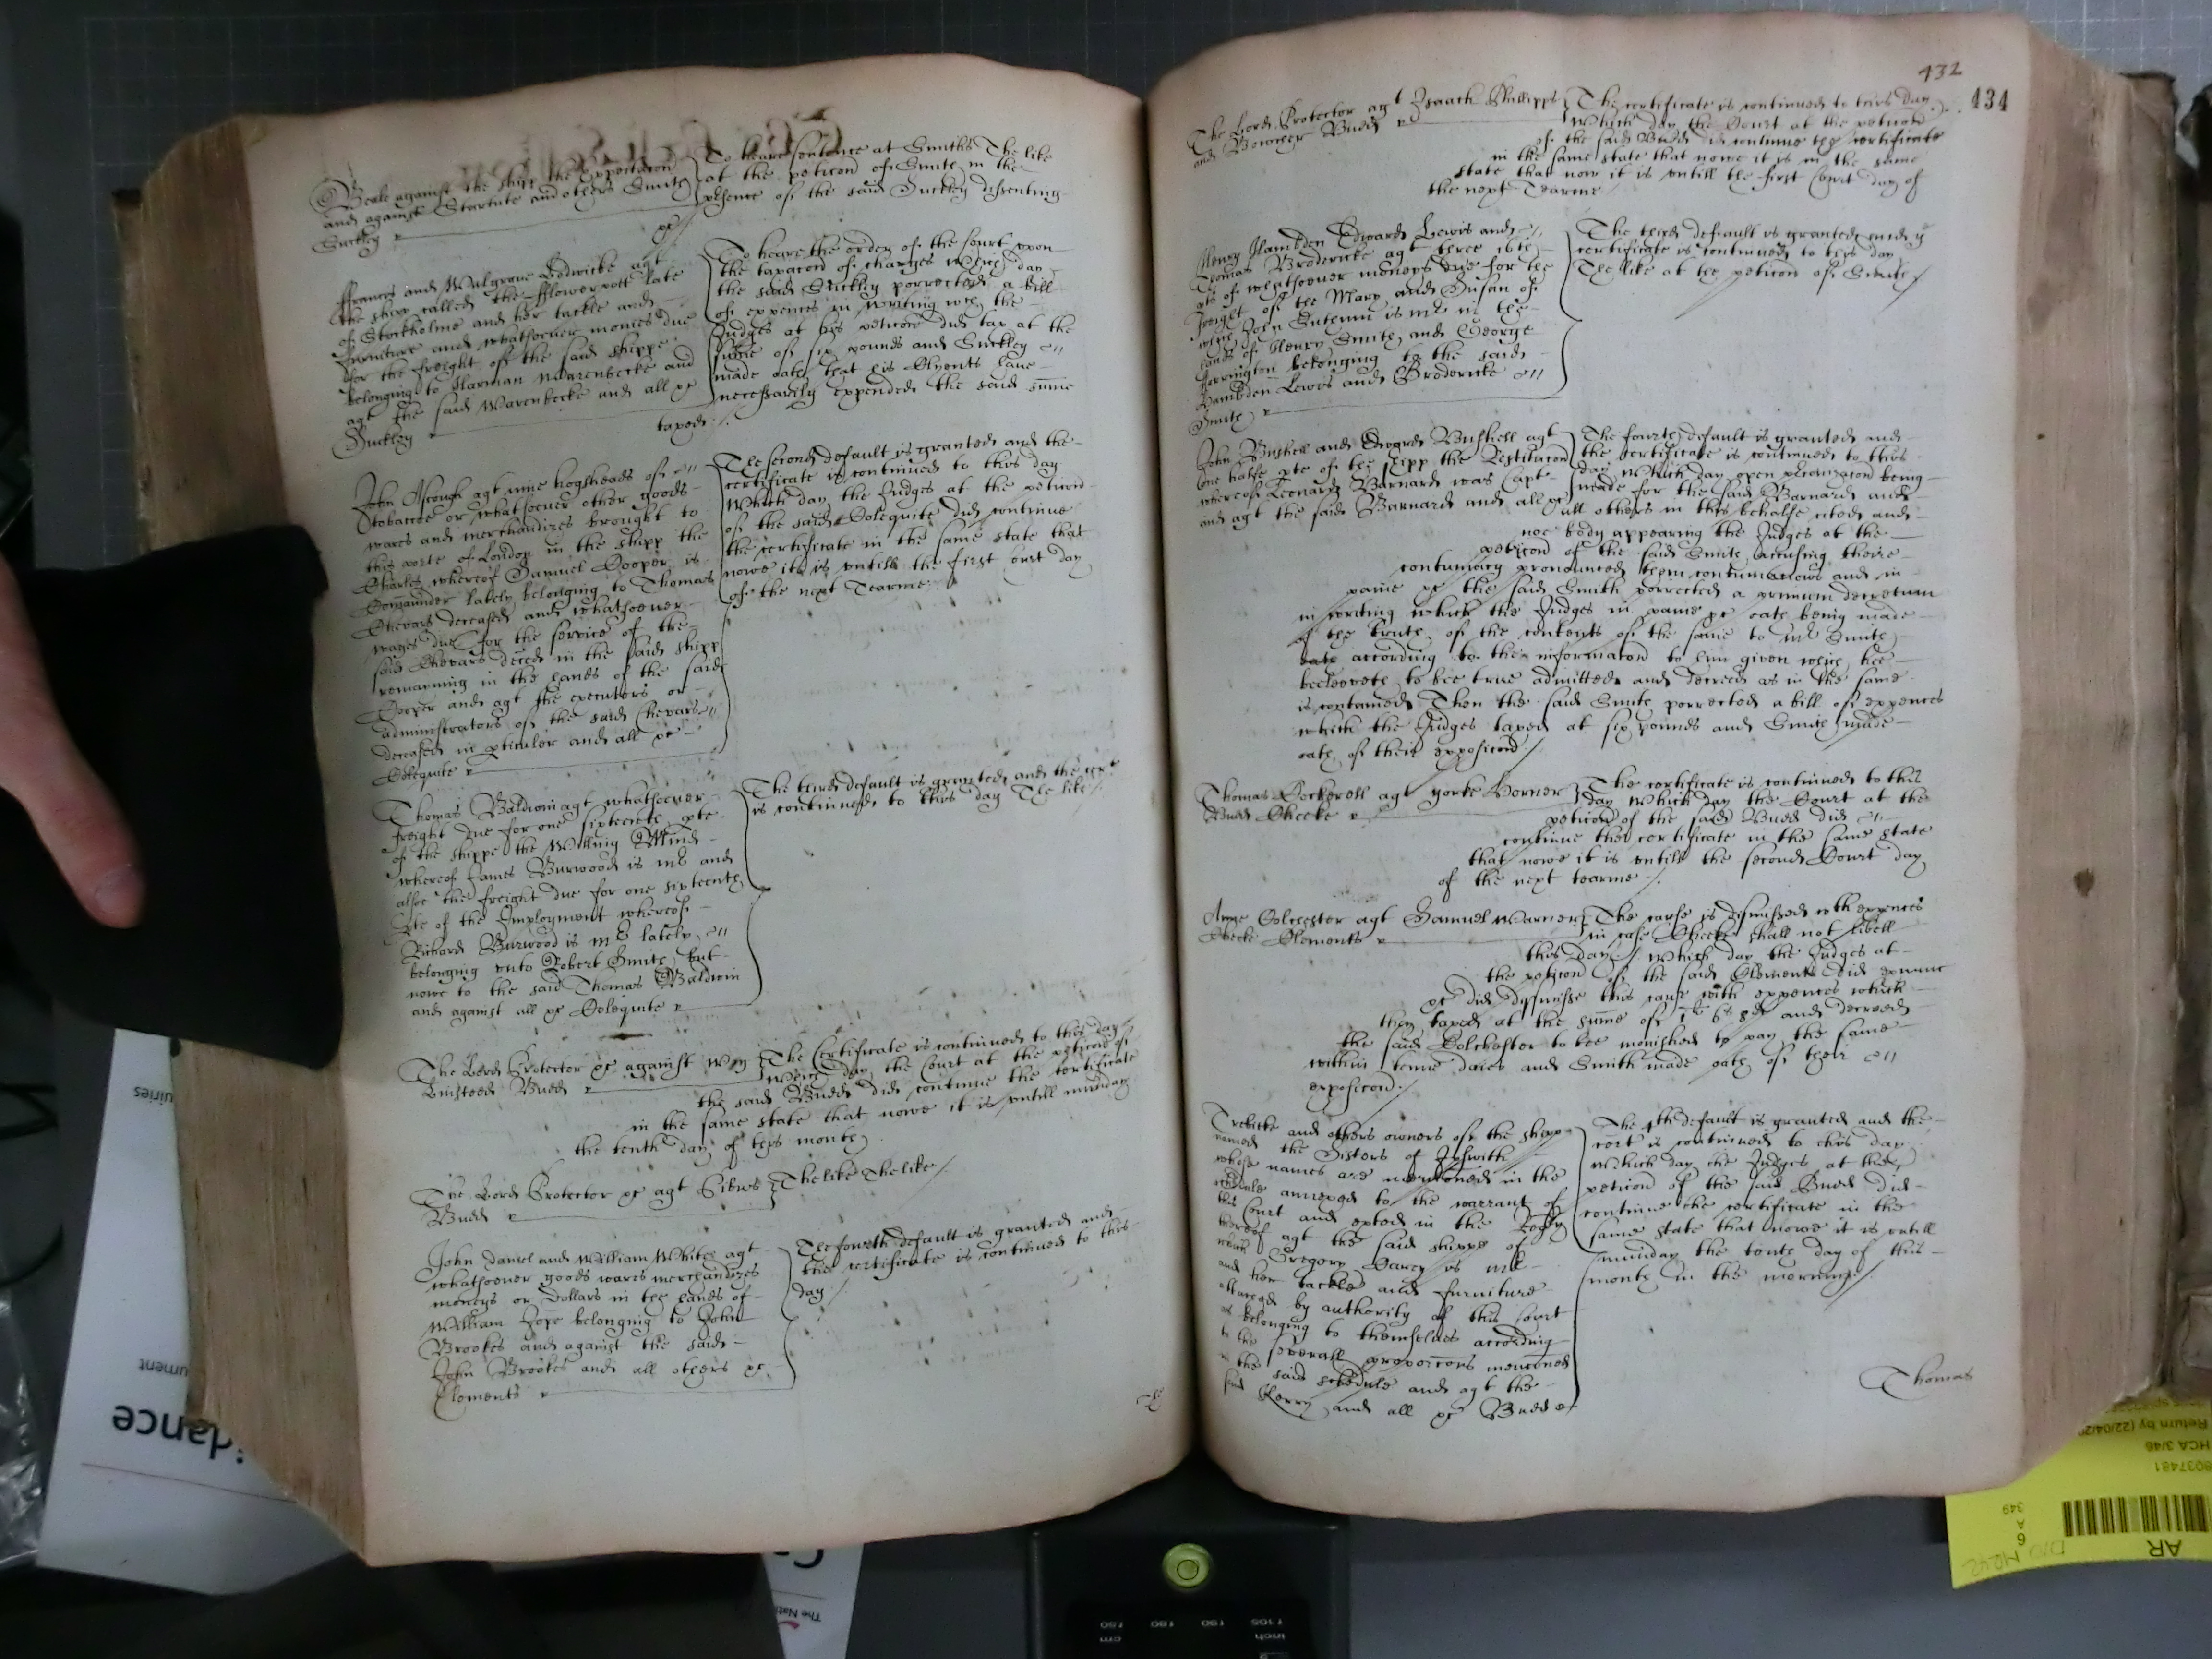 Beale against the shipp the Expectacon
and against Startute and others Smith
Suckley
To heare sentence at Smiths The like
at the peticon of Smith in the
presence of the said Suckley dissenting
ffrancis and Walgrave Lodwicke agt
the shipp called the fflowerpott late
of Stockholme and her tackle and
furniture and whatsoever monies due
for the freight of the said shippe
belonging to Harman Warenbecke and
agt the said Warenbecke and all &c
Suckley
To heare the order of the Court upon
the taxacon of charges Which day
the said Suckley porrected a bill
of expences in writing wch the
Judges at his peticon did tax at the
summe of six pounds and Suckley
made oath that his Clyents have
necessarily expended the said summe
taxed
John Ascough agt nine hogsheads of
tobaccoe or whatsoever other goods
wares and merchandizes brought to
this porte of London in the shipp the
Charles whereof Samuel Cooper is
Commander lately belonging to Thomas
Chevars deceased and whatsoever
wages due for the service of the
said Chevars deced in the said shipp
remayning in the hands of the said
Cooper and agt the executors or
administrators of the said Chevars
deceased in pticular and all &c
Colequite
The second default is granted and the
certificate is continued to this day
Which day the Judges at the peticon
of the said Colequite did continue
the certificate in the same state that
nowe it is untill the first Court day
of the next Tearme
Thomas Baldwin agt whatsoever
freight due for one sixteenth pte
of the shippe the Willing Mind
whereof James Burwood is mr and
alsoe the freight due for one sixteenth
pte of the Imployment whereof
Richard Burwood is mr lately
belonging unto Robert Smith but
nowe to the said Thomas Baldwin
and against all &c Colequite
The third default is granted and the cert
is continued to this day The like
The Lord Protector &c against Wm
Linsteed Budd
The Certificate is continued to this day
Which day the Court at the peticon of
the said Budd did continue the certificate
in the same state that nowe it is untill munday
the tenth day of this month
The Lord Protector &c agt
Budd
The like The like
John Daniel and William White agt
whatsoever goods wares merchandizes
moneys or Dollars in the hands of
William Hope belonging to John
Brookes and against the said
John Brookes and all others &c
Clements
The fourth default is granted and
the certificate is continued to this
day
432
434
The Lord Protector agt Isaack Phillipps
and Bowcher Budd
The certificate is continued to this day
Which day the Court at the peticon
of the said Budd did continue the certificate
in the same state that nowe it is in the same
state that now it is untill the first Court day of
the next Tearme
Henry Hambden Edward Lewis and
Thomas Brodericke agt three 16th
pts of whatsoever moneys due for the
freight of the Mary and Susan of
wch John is mr in the
hands of Henry Smith and George
belonging to the said
Hambden Lewis and Brodericke
Smith
The third default is granted and ye
certificate is continued to this day
The like at the peticon of Smith
John Bushell and Bushell agt
one halfe pte of the shipp the Restitucon
whereof Leonard Barnard was Captn
and agt the said Barnard and all &c
The fourth default is granted and
the certificate is continued to this
day Which day open proclamacon being
made for the said Barnard and
all others in this behalfe cited and
noe body appearing the Judges at the
peticon of the said Smith accusing theire
contumacy pronounced them contumacious and in
paine &c the said Smith porrected a primum decretum
in writing which the Judges in paine &c oath being made
of the truth of the contents of the same to Mr Smith
according to the informacon to him given which hee
beeleeveth to bee true admitted and decreed as in the same
is contained Then the said Smith porrected a bill of expences
which the Judges taxed at six pounds and Smith made
oath of their exposicon
Thomas Cockerell agt Yorke Horner
Budd Cheeke
The certificate is continued to this
day Which day the Court at the
peticon of the said Budd did
continue the certificate in the same state
that nowe it is untill the second Court day
of the next tearme
Anne Colchester agt Samuel Warner
Cheeke Clements
The cause is dismissed with expences
in case Cheeke shall not libell
this day Which day the Judges at
the peticon of the said Clements did
&c did dysmisse this cause with expences which
they taxed at the summe of 1li 6s 8d and decreed
the said Colchester to bee monished to pay the same
within tenne daies and Smith made oath of their
exposicon
and others owners of the shipp
named the Sisters of Ipswich
whose names are mentioned in the
schedule annexed to the warrant of
this Court and in the
thereof agt the said shippe of
which Gregory is mr
and her tackle and furniture
by authority of this Court
as belonging to themselves according
to the severall proporcons menconed
in the said schedule and agt the
said and all &c Budd
The 4th default is granted and the
cert is continued to this day
Which day the Judges at the
peticon of the said Budd did
continue the certificate in the
same state that nowe it is untill
munday the tenth day of this
month in the morning
Thomas